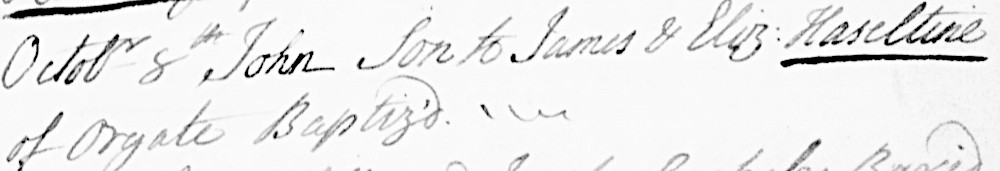 Octobr 8th John Son to James & Eliz: Haseltine
of Orgate Baptiz'd.
Buried